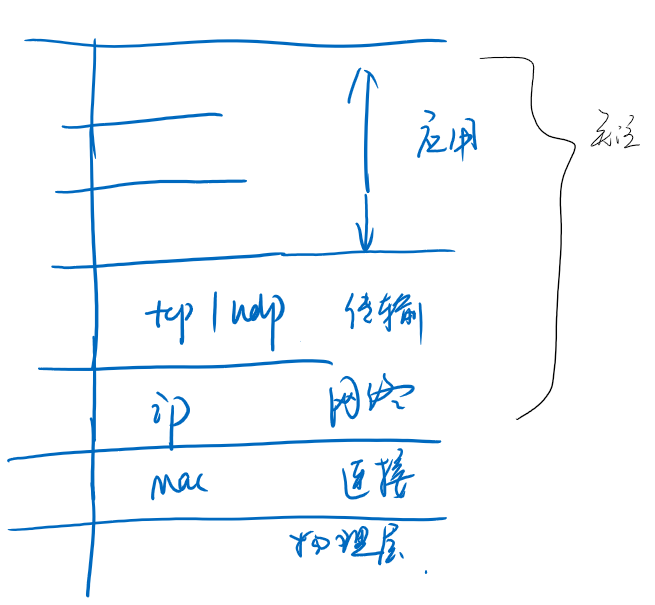 应用
关注
tcp | udp 传输
ip 网络
mac 连接
物理层